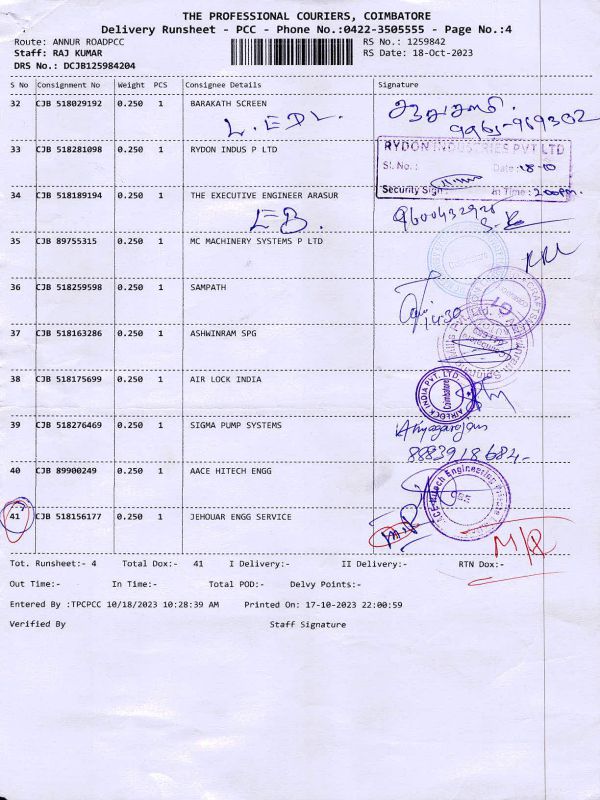 THE PROFESSIONAL COURIERS, COIMBATORE
Delivery Runsheet - PCC - Phone No.:0422-3505555 - Page No.:4
Route: ANNUR ROADPCC RS No.: 1259842
Staff: RAJ KUMAR RS Date: 18-Oct-2023
DRS No.: DCJB125984204
S No Consignment No Weight PCS Consignee Details Signature
32 CJB 518029192 0.250 1 BARAKATH SCREEN
33 CJB 518281098 0.250 1 RYDON INDUS P LTD RYDON INDUSTRIES PVT LTD
Sl. No.: Date: 18-10
Security Sign In Time: 2.00pm.
34 CJB 518189194 0.250 1 THE EXECUTIVE ENGINEER ARASUR
EB.
35 CJB 89755315 0.250 1 MC MACHINERY SYSTEMS P LTD
36 CJB 518259598 0.250 1 SAMPATH
14:30
37 CJB 518163286 0.250 1 ASHWINRAM SPG
38 CJB 518175699 0.250 1 AIR LOCK INDIA AIRLOCK INDIA PVT. LTD Coimbatore
39 CJB 518276469 0.250 1 SIGMA PUMP SYSTEMS
8883918684-
40 CJB 89900249 0.250 1 AACE HITECH ENGG
41 CJB 518156177 0.250 1 JEHOUAR ENGG SERVICE M/R
Tot. Runsheet:- 4 Total Dox:- 41 I Delivery:- II Delivery:- RTN Dox:-
Out Time:- In Time:- Total POD:- Delvy Points:-
Entered By :TPCPCC 10/18/2023 10:28:39 AM Printed On: 17-10-2023 22:00:59
Verified By Staff Signature